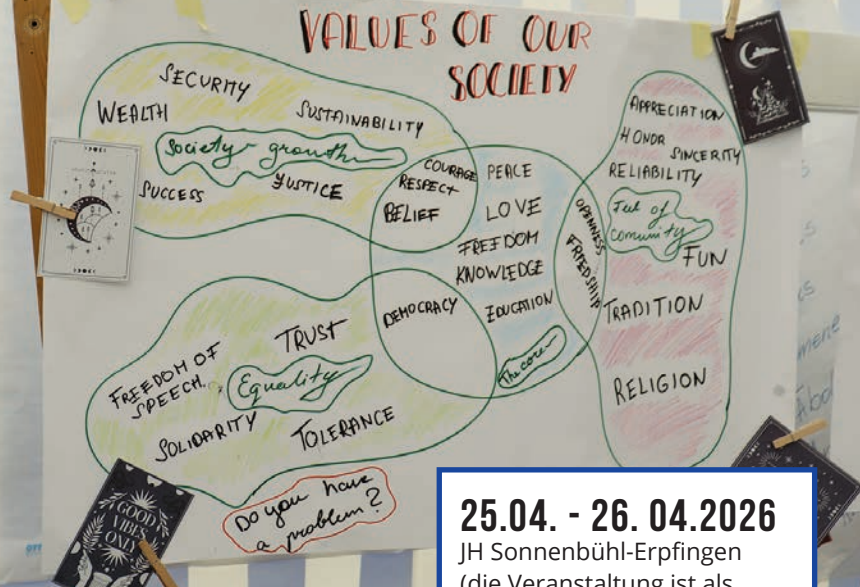 VALUES OF OUR
SOCIETY
SECURITY
WEALTH
SUSTAINABILITY
Society growth
SUCCESS
JUSTICE
COURAGE
RESPECT
BELIEF
PEACE
LOVE
FREEDOM
KNOWLEDGE
EDUCATION
The core
DEMOCRACY
OPENNESS
FRIEDSHIP
APPRECIATION
HONOR
SINCERITY
RELIABILITY
Feel of
comunity
FUN
TRADITION
RELIGION
TRUST
FREEDOM OF
SPEECH.
Equality
SOLIDARITY
TOLERANCE
Do you have
a problem?
GOOD
VIBES
ONLY
25.04. - 26. 04.2026
JH Sonnenbühl-Erpfingen
(die Veranstaltung ist als